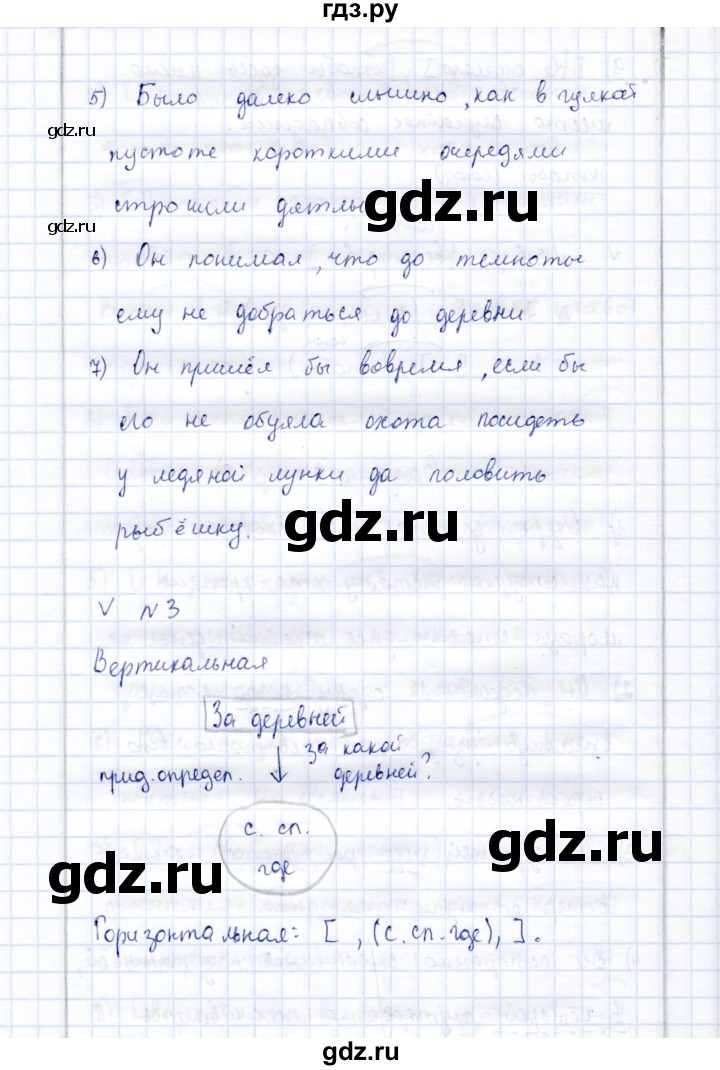 гдз.ру
5) Было далеко слышно, как в гулкой
gdz.ru
пустоте короткими очередями
gdz.ru
строчили дятлы
gdz.ru
6) Он понимал, что до темноты
ему не добраться до деревни
7) Он пришёл бы вовремя, если бы
его не обуяла охота посидеть
у ледяной лунки да половить
рыбёшку.
gdz.ru
V N 3
Вертикальная
За деревней
за какой
прид. определ. ↓ деревней?
с. сп.
где
gdz.ru
gdz.ru
Горизонтальная: [ , (с. сп. где), ].
gdz.ru